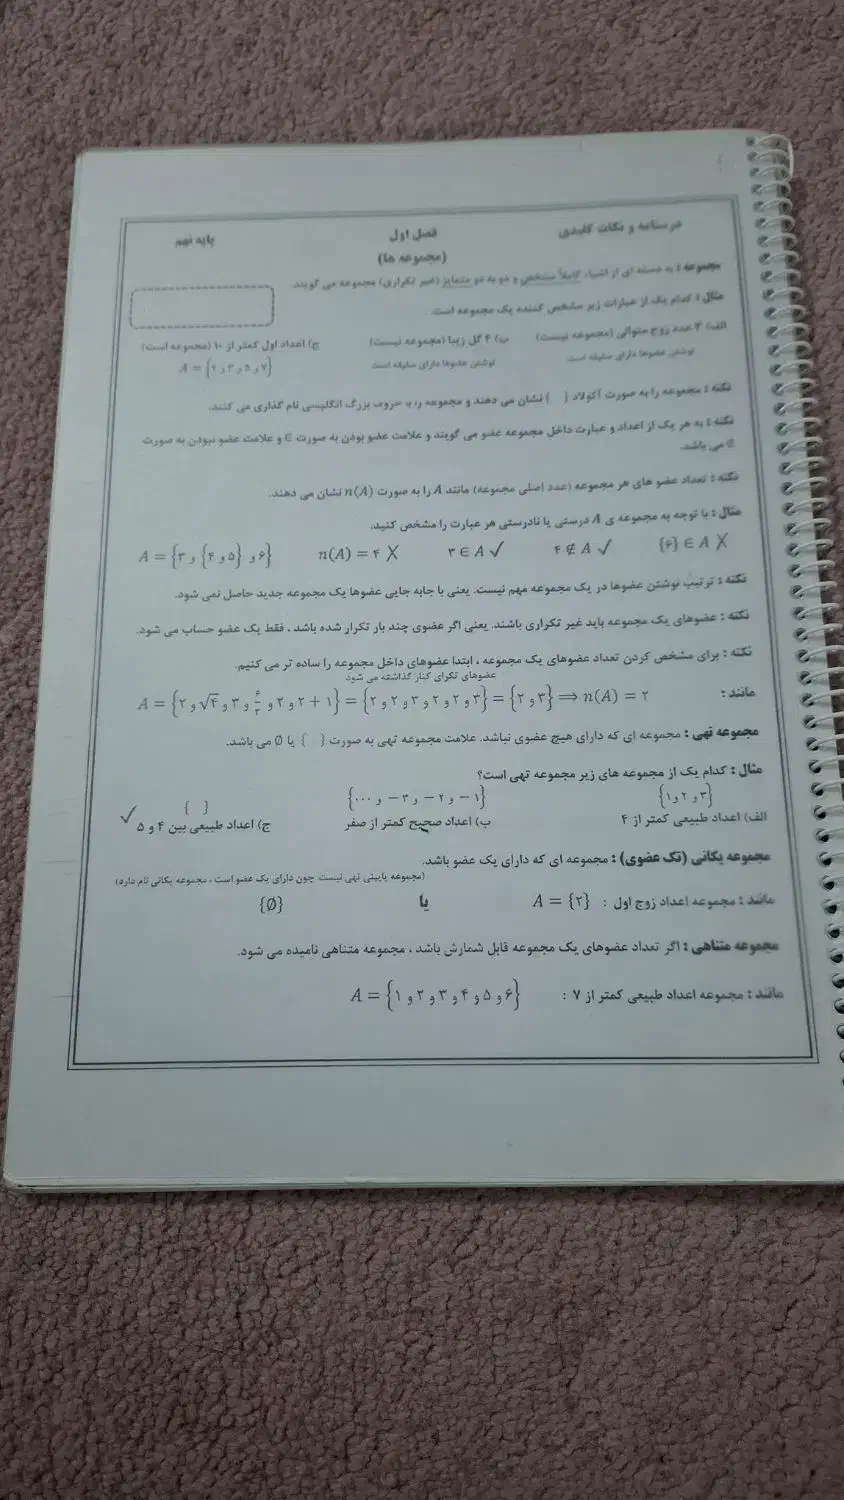 درسنامه و نکات کلیدی فصل اول پایه نهم
(مجموعه ها)
مجموعه : به دسته ای از اشیاء کاملاً مشخص و دو به دو متمایز (غیر تکراری) مجموعه می گویند.
مثال : کدام یک از عبارات زیر مشخص کننده یک مجموعه است.
الف) ۳ عدد زوج متوالی (مجموعه نیست) ب) ۴ گل زیبا (مجموعه نیست) ج) اعداد اول کمتر از ۱۰ (مجموعه است)
نوشتن عضوها دارای سلیقه است نوشتن عضوها دارای سلیقه است A = {۲ و ۳ و ۵ و ۷}
نکته : مجموعه را به صورت آکولاد { } نشان می دهند و مجموعه را با حروف بزرگ انگلیسی نام گذاری می کنند.
نکته : به هر یک از اعداد و عبارت داخل مجموعه عضو می گویند و علامت عضو بودن به صورت ∈ و علامت عضو نبودن به صورت
∉ می باشد.
نکته : تعداد عضو های هر مجموعه (عدد اصلی مجموعه) مانند A را به صورت n(A) نشان می دهند.
مثال : با توجه به مجموعه ی A درستی یا نادرستی هر عبارت را مشخص کنید.
A = {۳ و {۴ و ۵} و ۶} n(A) = ۴ ✗ ۳ ∈ A ✓ ۴ ∉ A ✓ {۶} ∈ A ✗
نکته : ترتیب نوشتن عضوها در یک مجموعه مهم نیست. یعنی با جابه جایی عضوها یک مجموعه جدید حاصل نمی شود.
نکته : عضوهای یک مجموعه باید غیر تکراری باشند. یعنی اگر عضوی چند بار تکرار شده باشد ، فقط یک عضو حساب می شود.
نکته : برای مشخص کردن تعداد عضوهای یک مجموعه ، ابتدا عضوهای داخل مجموعه را ساده تر می کنیم.
عضوهای تکرای کنار گذاشته می شود
مانند : A = {۲ و √۴ و ۳ و ۶/۳ و ۲ و ۲ + ۱} = {۲ و ۲ و ۳ و ۲ و ۲ و ۳} = {۲ و ۳} ⟹ n(A) = ۲
مجموعه تهی : مجموعه ای که دارای هیچ عضوی نباشد. علامت مجموعه تهی به صورت { } یا ∅ می باشد.
مثال : کدام یک از مجموعه های زیر مجموعه تهی است؟
{۱ و ۲ و ۳} {… و ۳ − و ۲ − و ۱ −} { }
الف) اعداد طبیعی کمتر از ۴ ب) اعداد صحیح کمتر از صفر ج) اعداد طبیعی بین ۴ و ۵ ✓
مجموعه یکانی (تک عضوی) : مجموعه ای که دارای یک عضو باشد.
(مجموعه پایینی تهی نیست. چون دارای یک عضو است ، مجموعه یکانی نام دارد)
مانند : مجموعه اعداد زوج اول : A = {۲} یا {∅}
مجموعه متناهی : اگر تعداد عضوهای یک مجموعه قابل شمارش باشد ، مجموعه متناهی نامیده می شود.
مانند : مجموعه اعداد طبیعی کمتر از ۷ : A = {۱ و ۲ و ۳ و ۴ و ۵ و ۶}